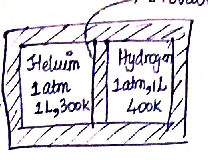 Heluim
1 atm
1L, 300k
Hydrogen
1atm, 1L
400k